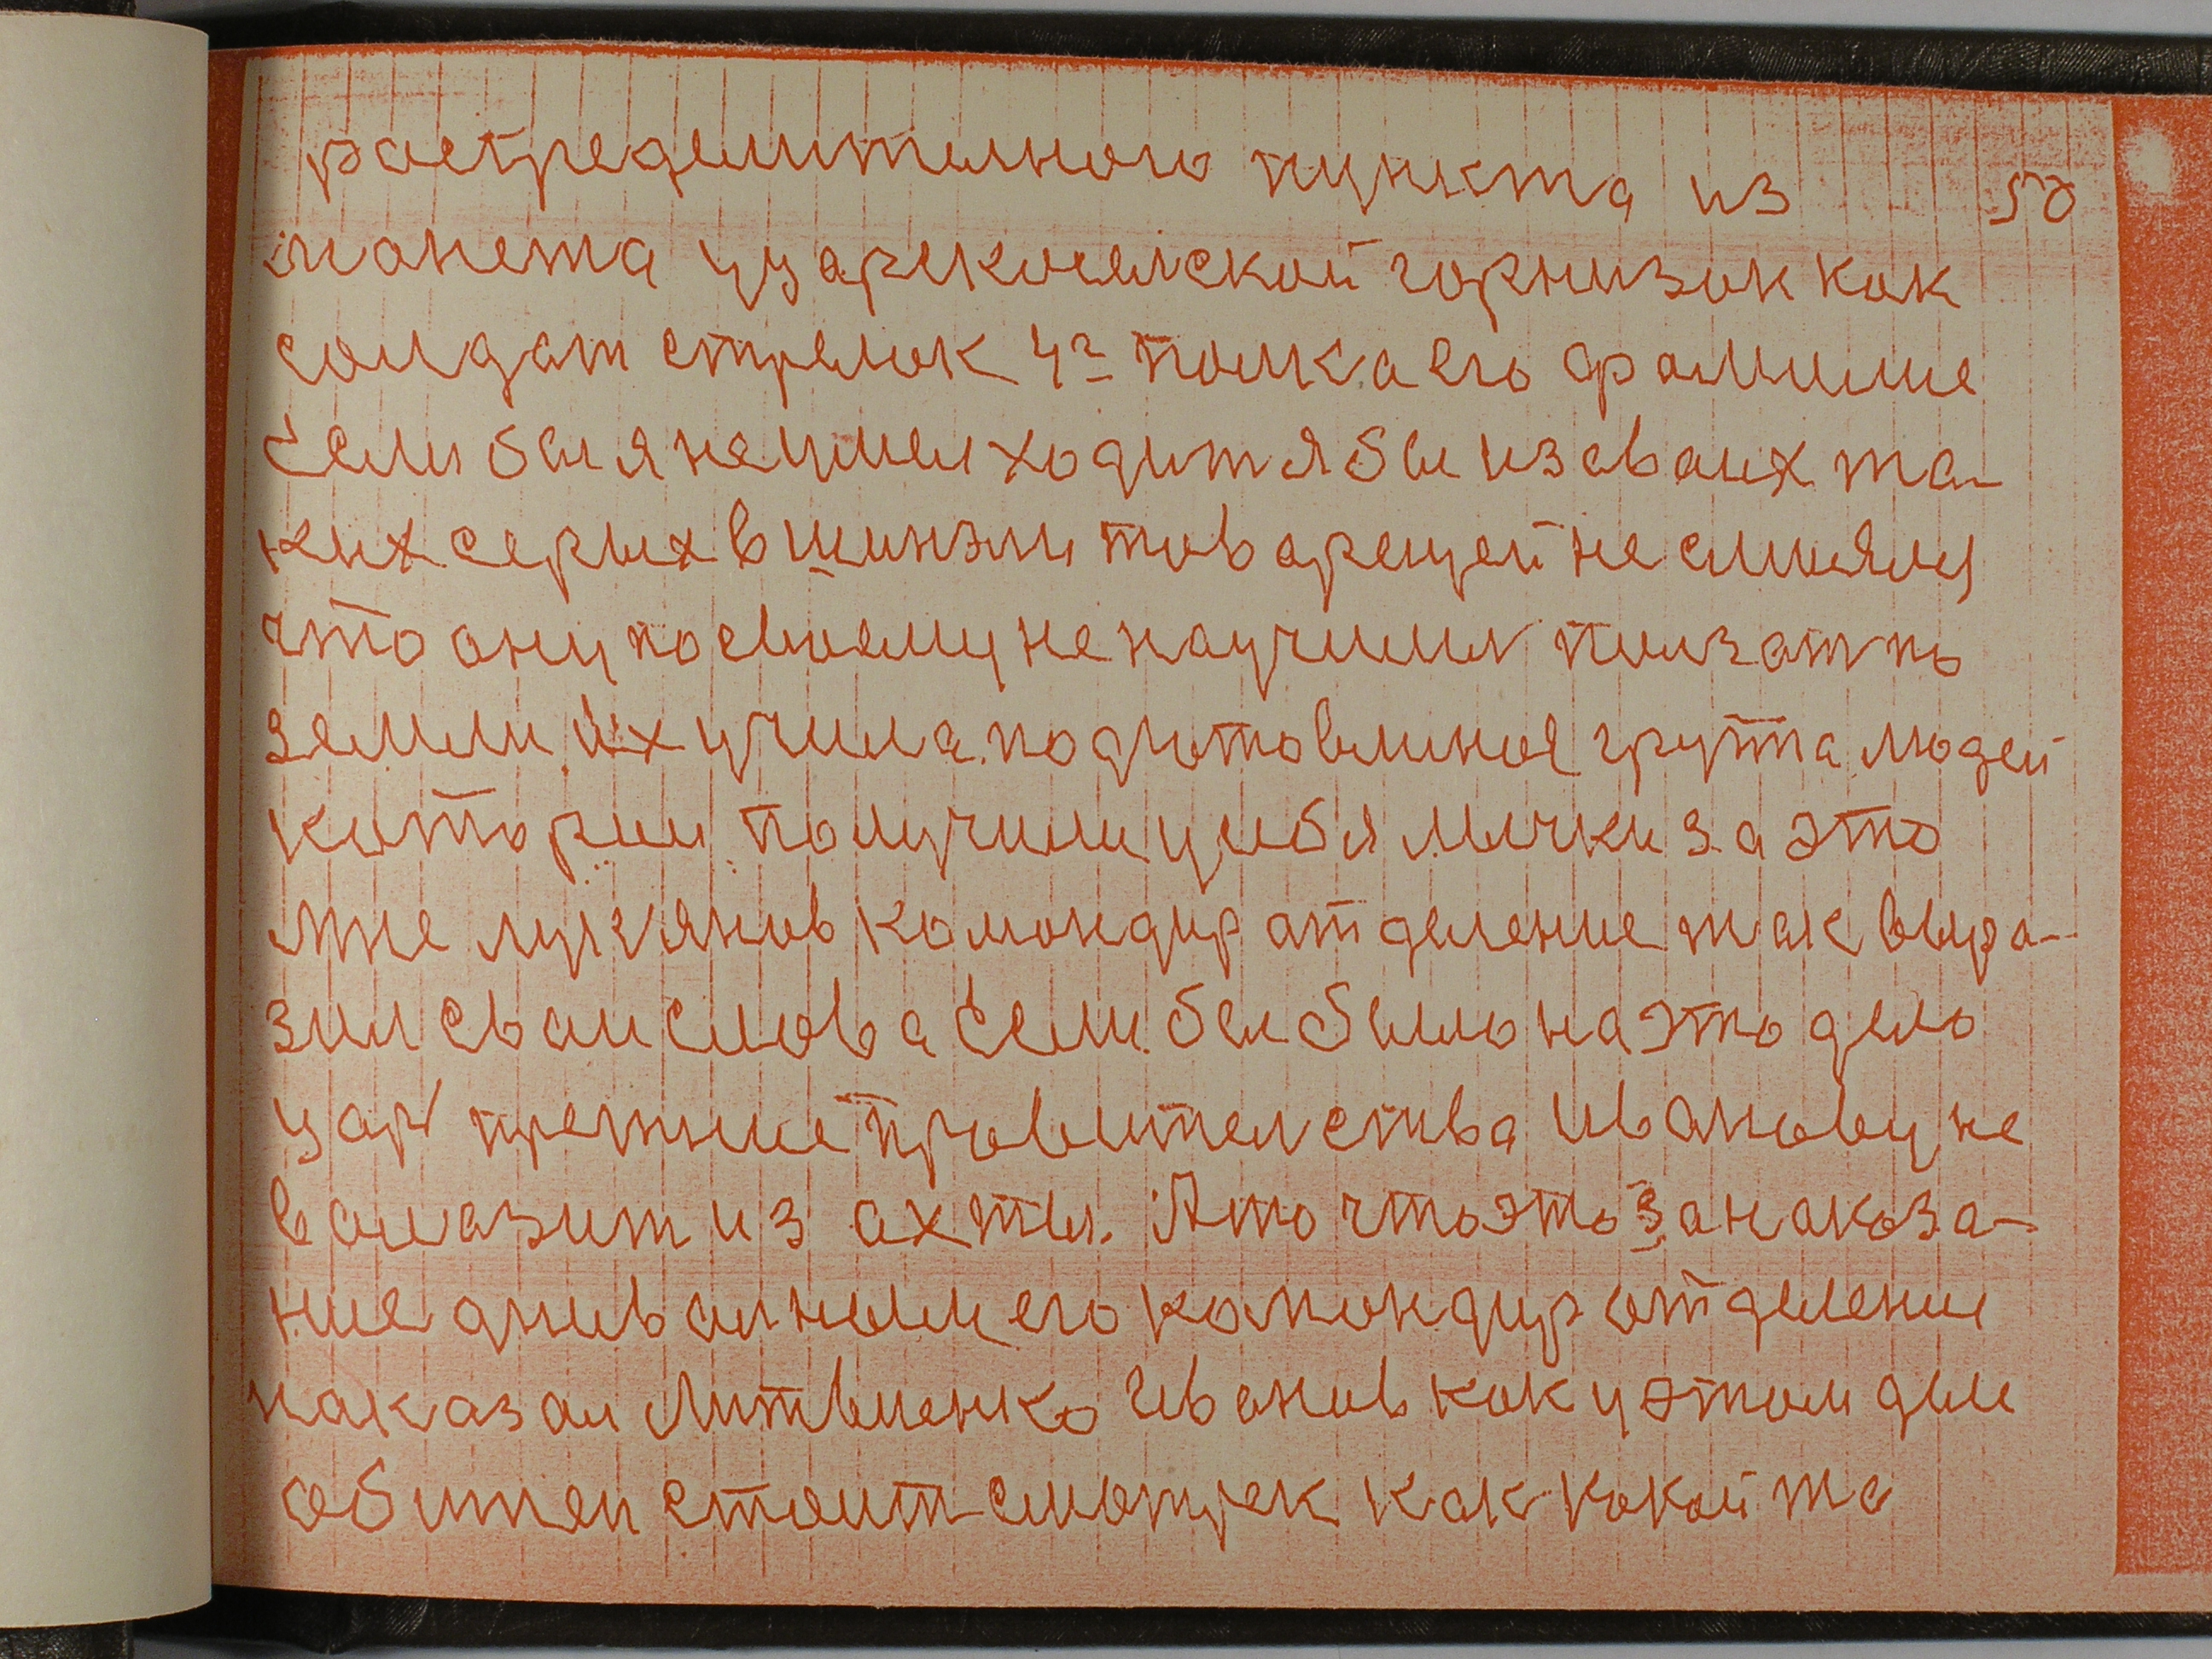 роспределителного пункта из 50
манета узарскоселской горнизон как
солдат стрелок 4г полка его фамилие
Если бы я не умел ходит я бы из сваих та-
ких серых в шинэли товарещей не смиялся
что ани по своему не научилис ползат по
земли Их учила подготовлиное група людей
котории получили у себя мички за это
мне лукянов командир атделение так выра-
зил сваи слова Если бы было на это дело
узар прежние провителства Иванову не
валазит из ахты. А то что это за наказа-
ние днивалным его командир отделение
наказал Литвиенко Иванов как у этом деле
обител стоит смотрек как какой то